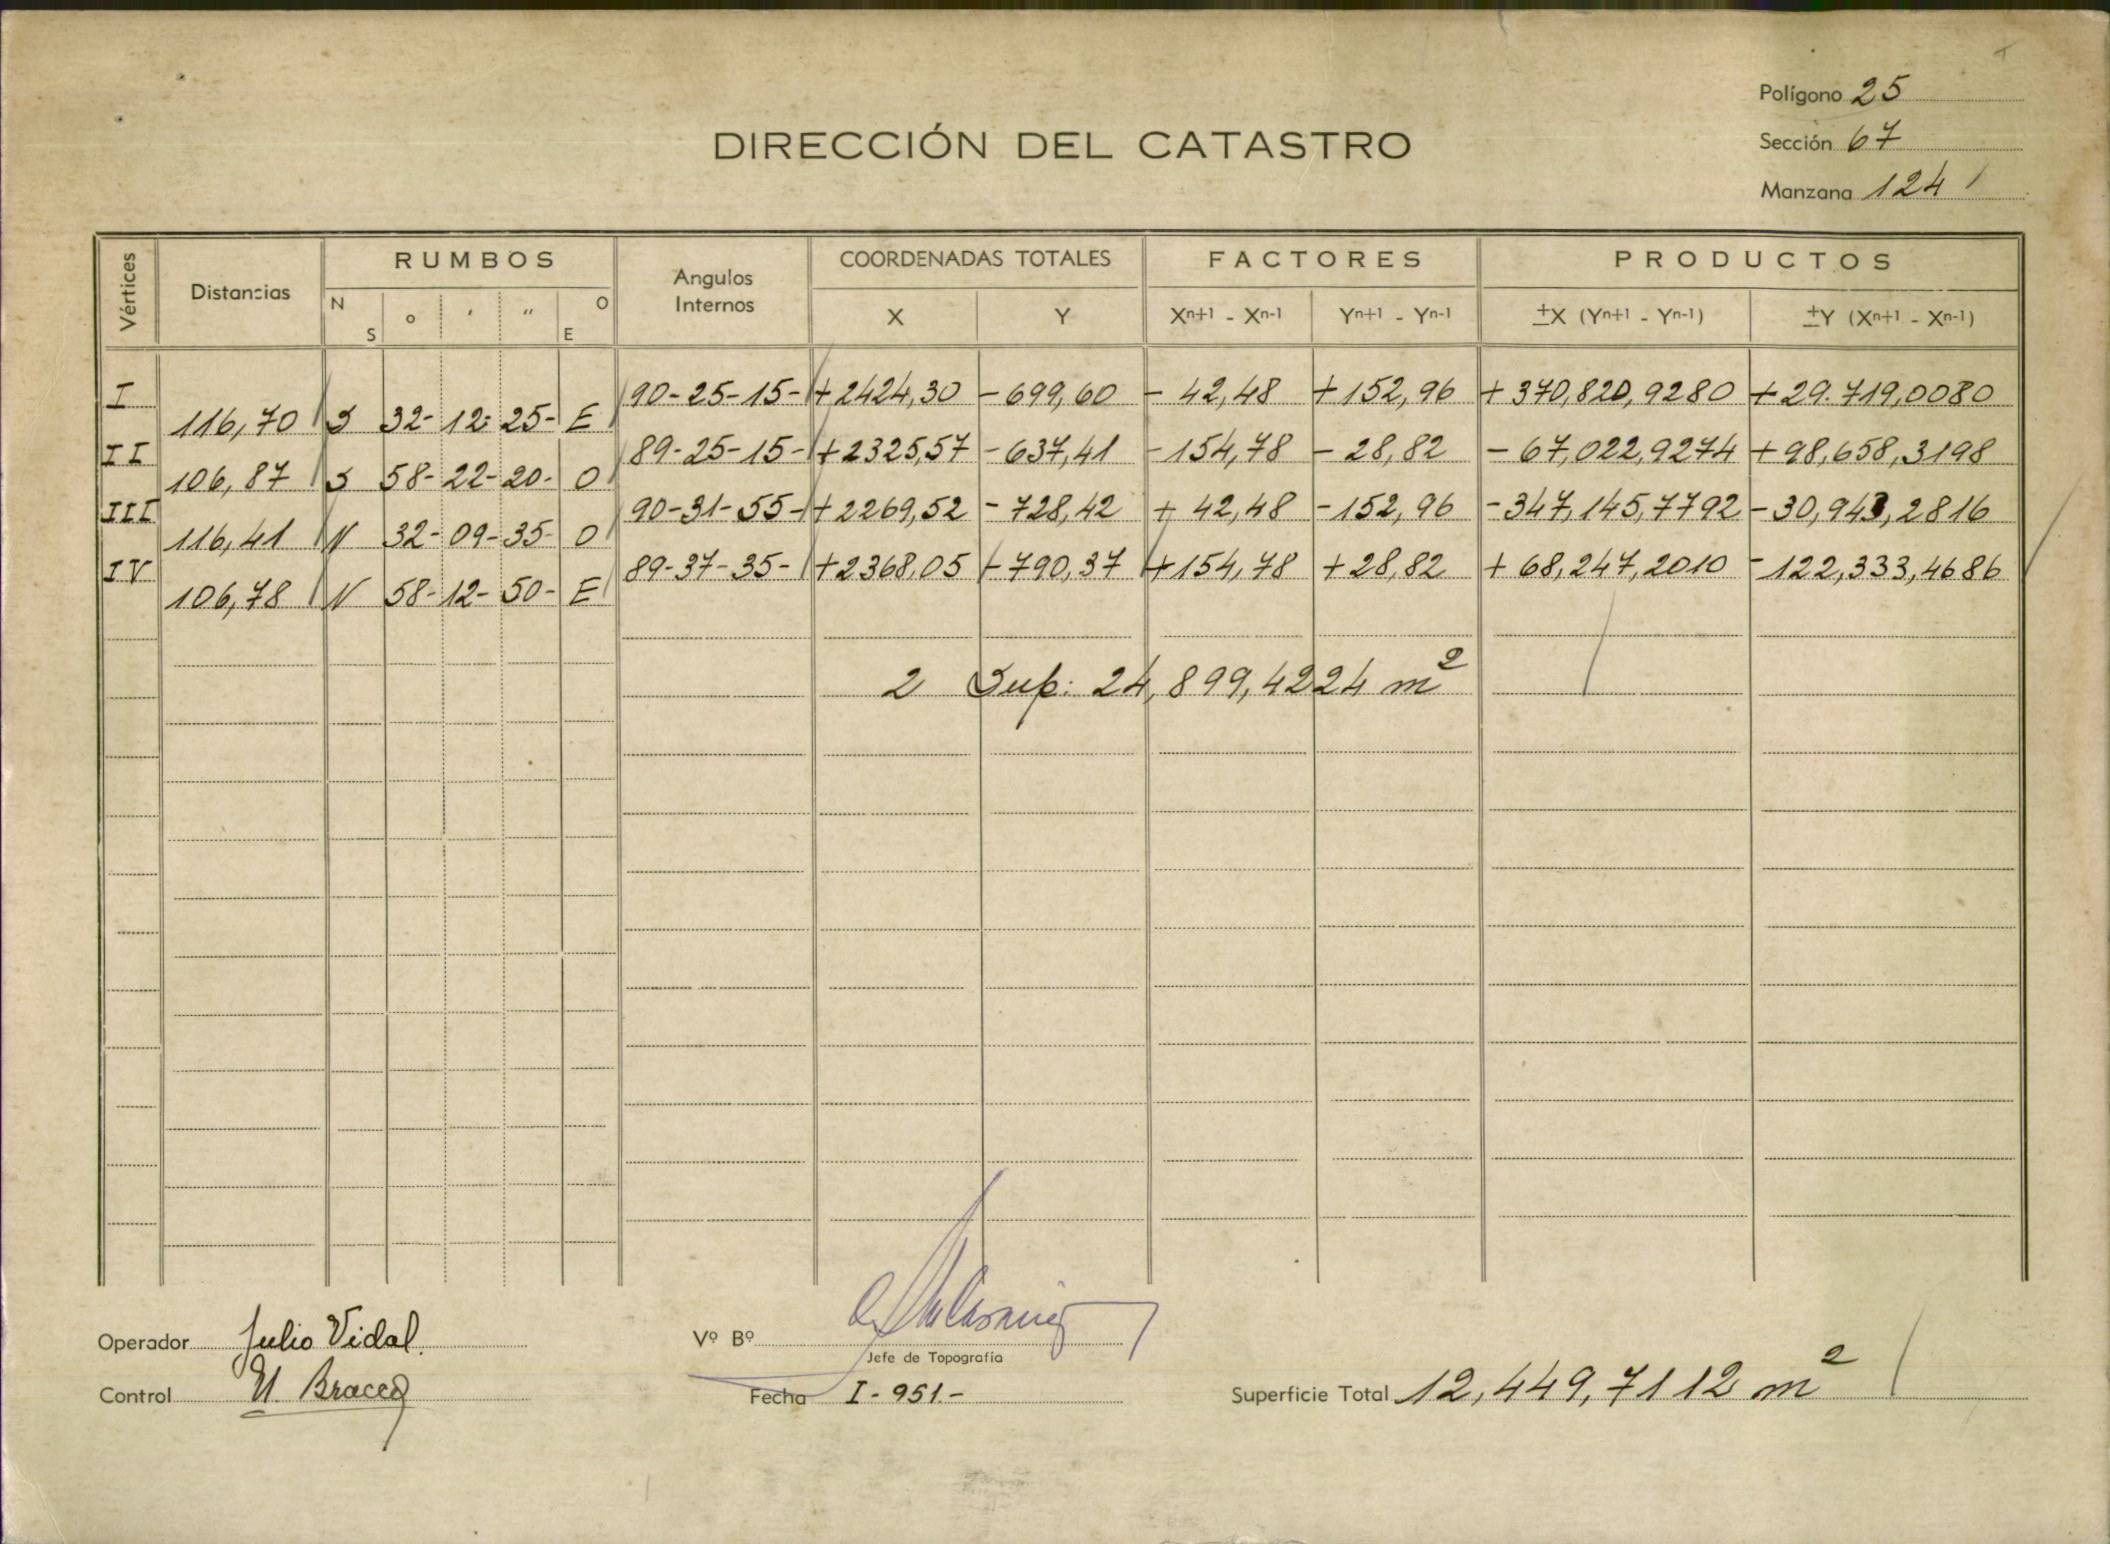 Polígono 25
DIRECCIÓN DEL CATASTRO
Sección 67
Manzana 124
Vértices Distancias RUMBOS Angulos Internos COORDENADAS TOTALES FACTORES PRODUCTOS
N S o ' " O E X Y Xn+1 - Xn-1 Yn+1 - Yn-1 ±X (Yn+1 - Yn-1) ±Y (Xn+1 - Xn-1)
I 90-25-15- +2424,30 -699,60 - 42,48 +152,96 +370,820,9280 +29.719,0080
116,70 S 32- 12- 25- E
II 89-25-15- +2325,57 -637,41 -154,78 - 28,82 - 67,022,9274 +98,658,3198
106,87 S 58- 22- 20- O
III 90-31-55- +2269,52 -728,42 + 42,48 -152,96 -347,145,7792 -30,943,2816
116,41 N 32- 09- 35- O
IV 89-37-35- +2368,05 -790,37 +154,78 +28,82 + 68,247,2010 -122,333,4686
106,78 N 58- 12- 50- E
2 Sup: 24,899,4224 m²
Operador Julio Vidal.
Vº Bº
Jefe de Topografía
Control
Fecha I-951.-
Superficie Total 12,449,7112 m²